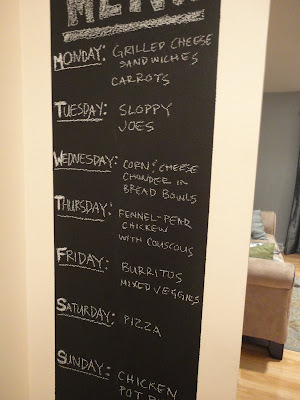 MENU
MONDAY: GRILLED CHEESE
SANDWICHES
CARROTS
TUESDAY: SLOPPY
JOES
WEDNESDAY: CORN & CHEESE
CHOWDER IN
BREAD BOWLS
THURSDAY: FENNEL-PEAR
CHICKEN
WITH COUSCOUS
FRIDAY: BURRITOS
MIXED VEGGIES
SATURDAY: PIZZA
SUNDAY: CHICKEN
POT